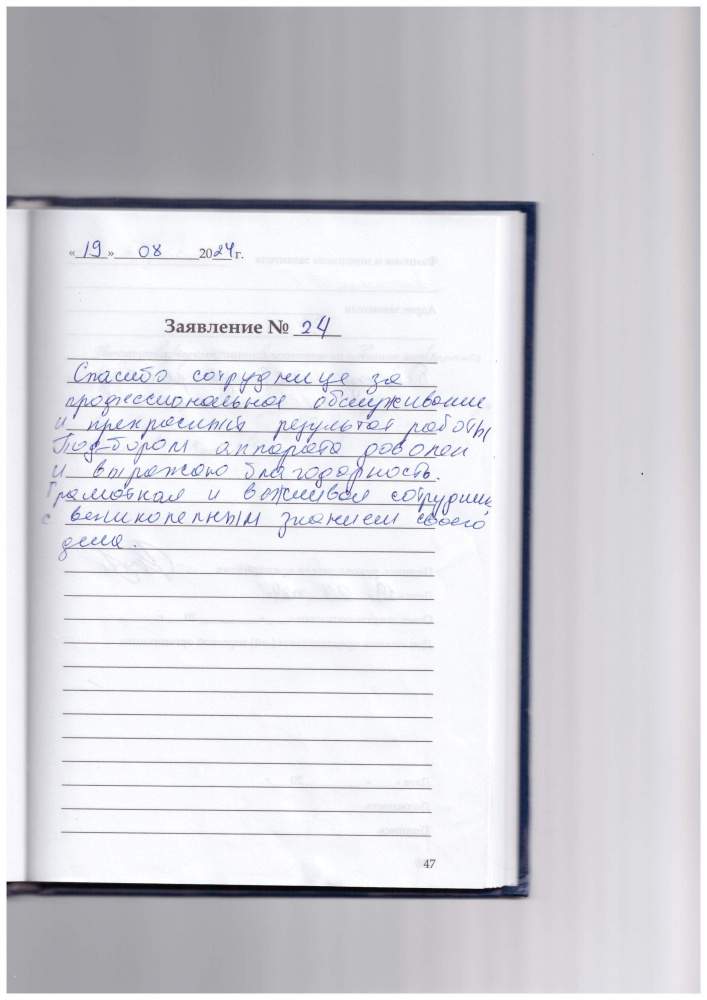 «19» 08 2024 г.
Заявление № 24
Спасибо сотруднице за
профессиональное обслуживание
и прекрасный результат работы
Подбором аппарата доволен
и выражаю благодарность.
Грамотная и вежливая сотрудник
с великолепным знанием своего
дела.
47